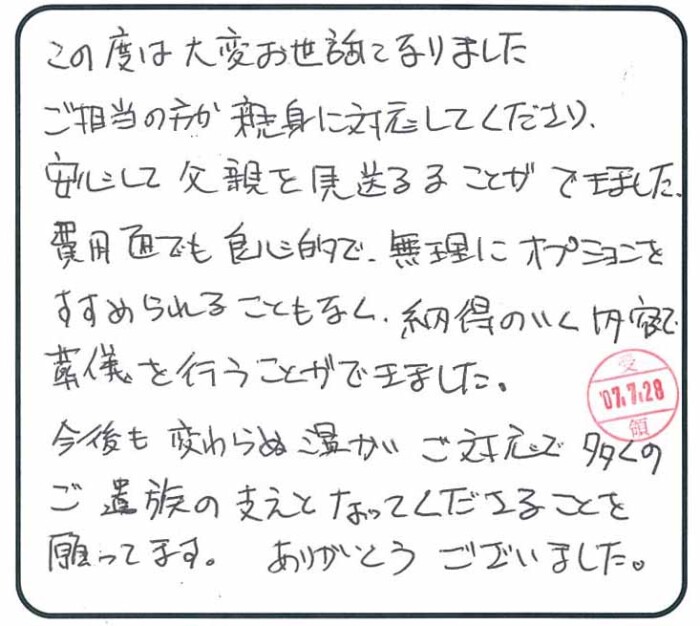 この度は大変お世話になりました
ご担当の方が親身に対応してくださり、
安心して父親を見送るることができました。
費用面でも良心的で、無理にオプションを
すすめられることもなく、納得のいく内容で
葬儀を行うことができました。
受
'07.7.28
領
今後も変わらぬ温かい ご対応で多くの
ご遺族の支えとなってくださることを
願ってます。 ありがとうございました。